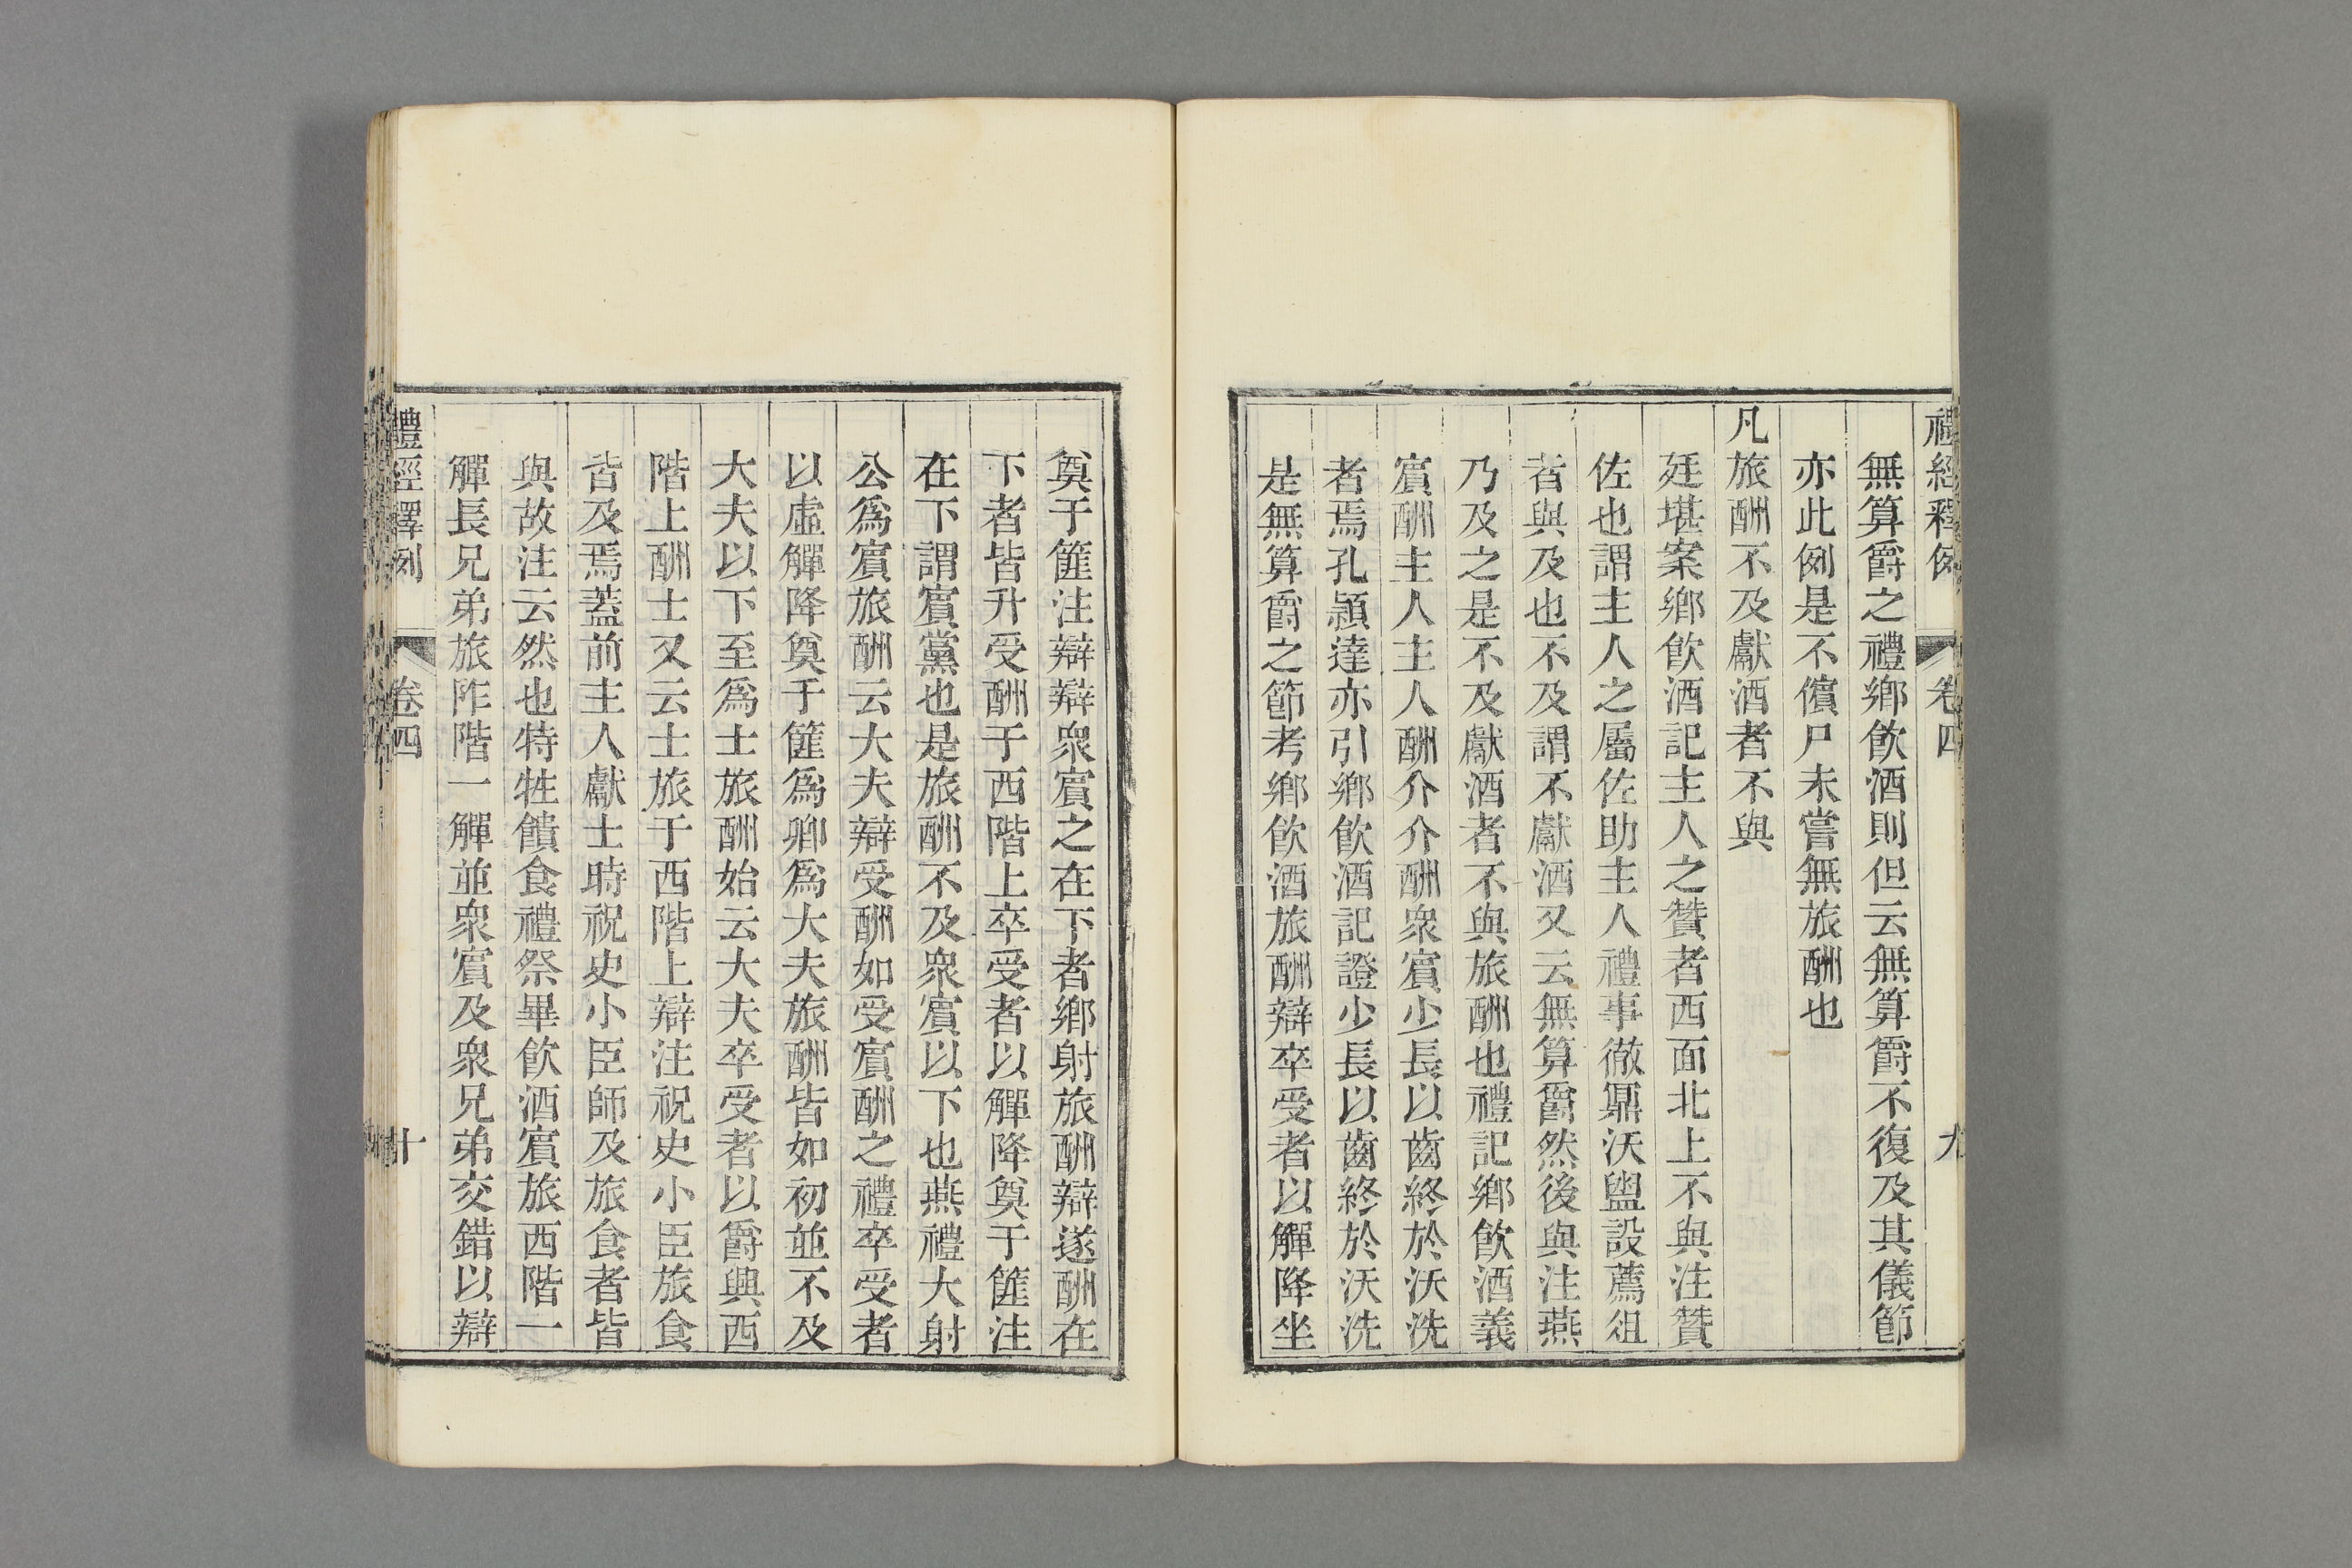 禮經釋例 卷四 九
無算爵之禮鄉飲酒則但云無算爵不復及其儀節
亦此例是不儐尸未嘗無旅酬也
凡旅酬不及獻酒者不與
廷堪案鄉飲酒記主人之贊者西面北上不與注贊
佐也謂主人之屬佐助主人禮事徹鼏沃盥設薦俎
者與及也不及謂不獻酒又云無算爵然後與注燕
乃及之是不及獻酒者不與旅酬也禮記鄉飲酒義
賓酬主人主人酬介介酬衆賓少長以齒終於沃洗
者焉孔穎達亦引鄉飲酒記證少長以齒終於沃洗
是無算爵之節考鄉飲酒旅酬辯卒受者以觶降坐
奠于篚注辯辯衆賓之在下者鄉射旅酬辯遂酬在
下者皆升受酬于西階上卒受者以觶降奠于篚注
在下謂賓黨也是旅酬不及衆賓以下也燕禮大射
公爲賓旅酬云大夫辯受酬如受賓酬之禮卒受者
以虛觶降奠于篚爲卿爲大夫旅酬皆如初並不及
大夫以下至爲士旅酬始云大夫卒受者以爵興西
階上酬士又云士旅于西階上辯注祝史小臣旅食
皆及焉蓋前主人獻士時祝史小臣師及旅食者皆
與故注云然也特牲饋食禮祭畢飲酒賓旅西階一
觶長兄弟旅阼階一觶並衆賓及衆兄弟交錯以辯
禮經釋例 卷四 十